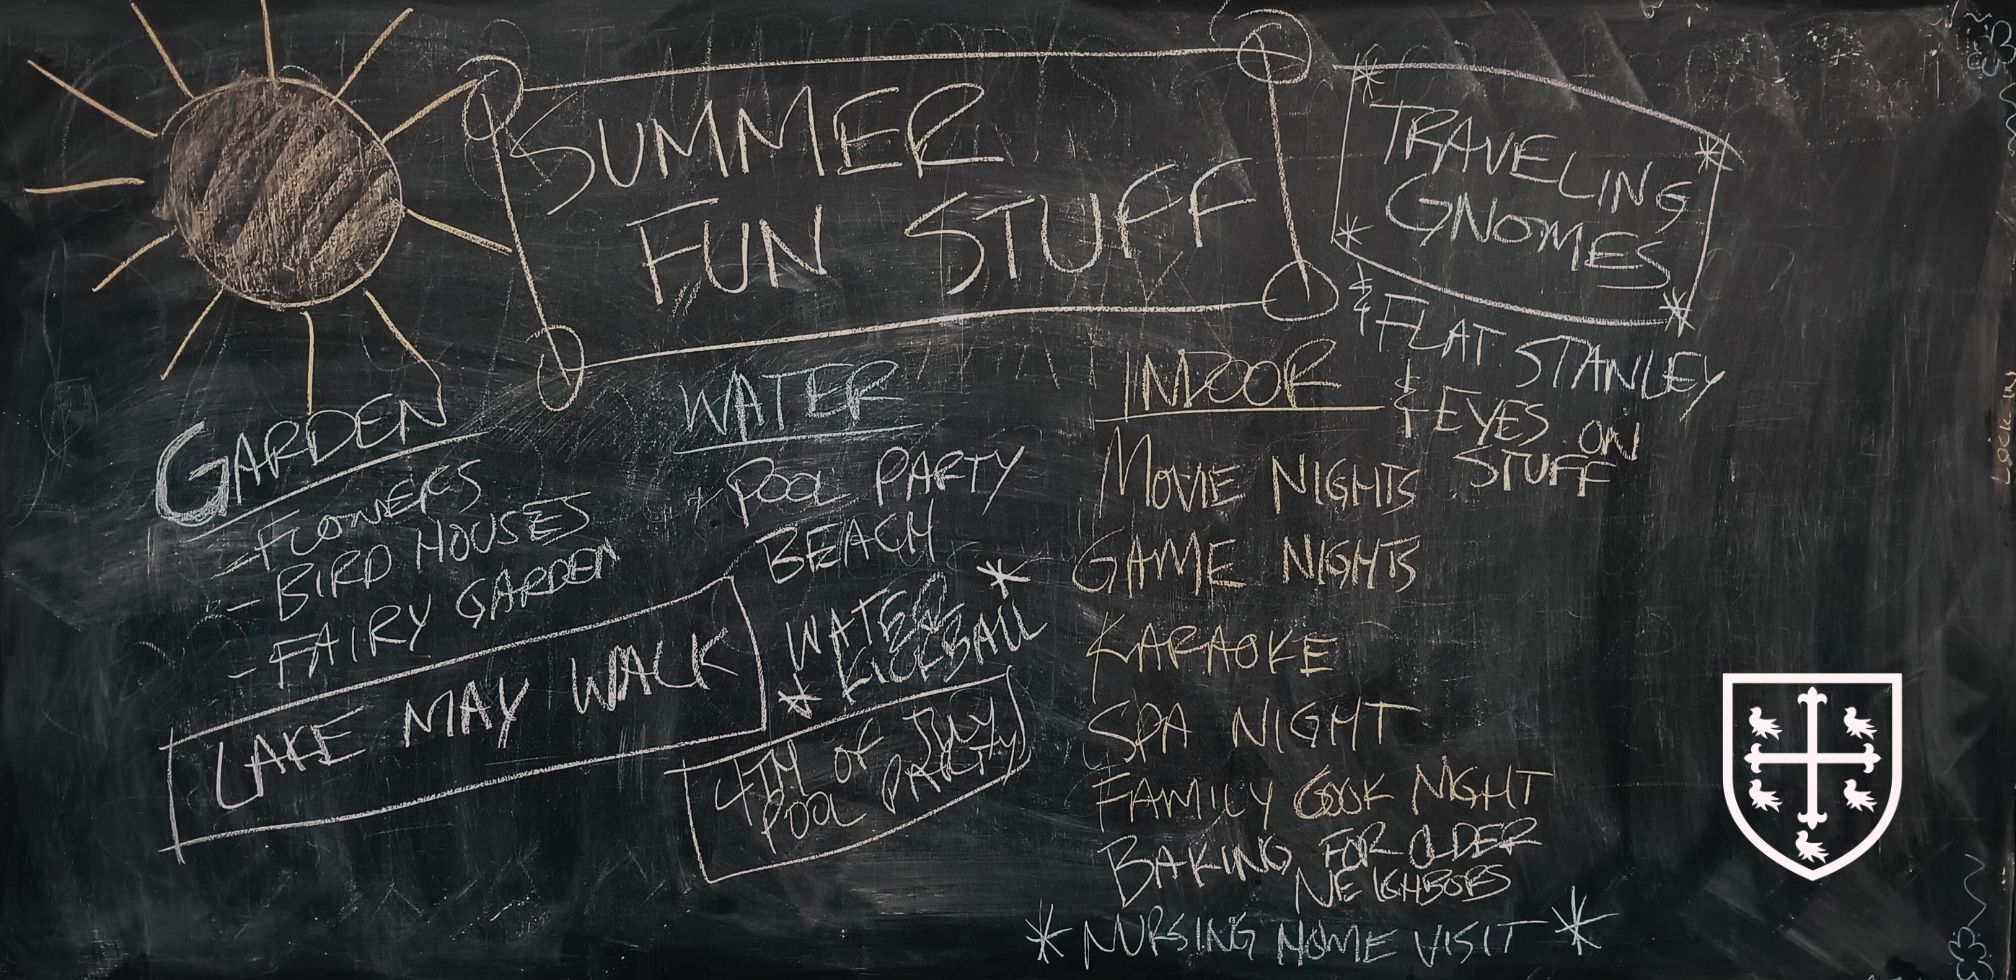 SUMMER
FUN STUFF
TRAVELING
GNOMES
& FLAT STANLEY
& EYES ON
STUFF
GARDEN
- FLOWERS
- BIRD HOUSES
- FAIRY GARDEN
LAKE MAY WALK
WATER
POOL PARTY
BEACH
* WATER
KICKBALL *
4TH OF JULY
POOL PARTY
INDOOR
MOVIE NIGHTS
GAME NIGHTS
KARAOKE
SPA NIGHT
FAMILY COOK NIGHT
BAKING FOR OLDER
NEIGHBORS
* NURSING HOME VISIT *